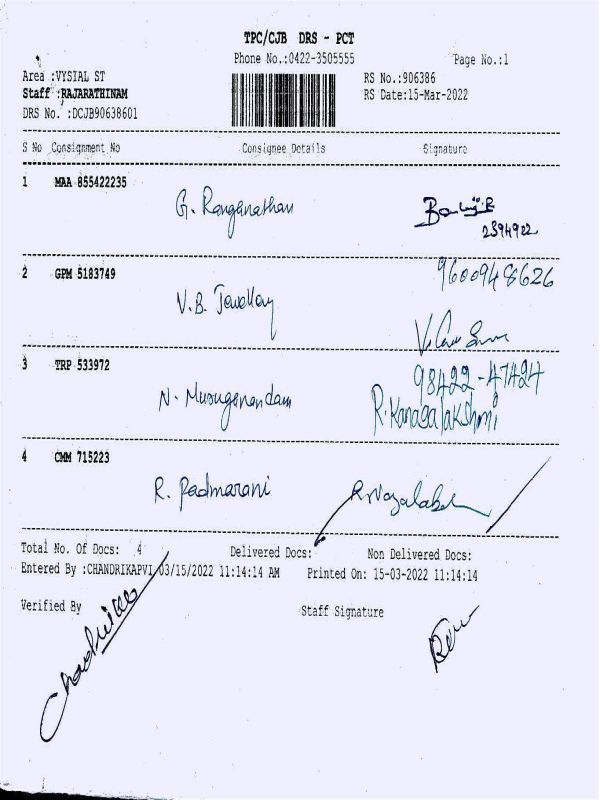 TPC/CJB DRS - PCT
Phone No.:0422-3505555
Page No.:1
Area :VYSIAL ST
RS No.:906386
Staff :RAJARATHINAM
RS Date:15-Mar-2022
DRS No. :DCJB90638601
S No Consignment No Consignee Details Signature
1 MAA 855422235
G. Ranganathan
2394922
2 GPM 5183749
9600948626
V.B. Jewellery
3 TRP 533972
98422-47424
N. Muruganandam
R. Kanagalakshmi
4 CMM 715223
R. Padmarani
Total No. Of Docs: 4 Delivered Docs: Non Delivered Docs:
Entered By :CHANDRIKAPVI 03/15/2022 11:14:14 AM Printed On: 15-03-2022 11:14:14
Verified By Staff Signature